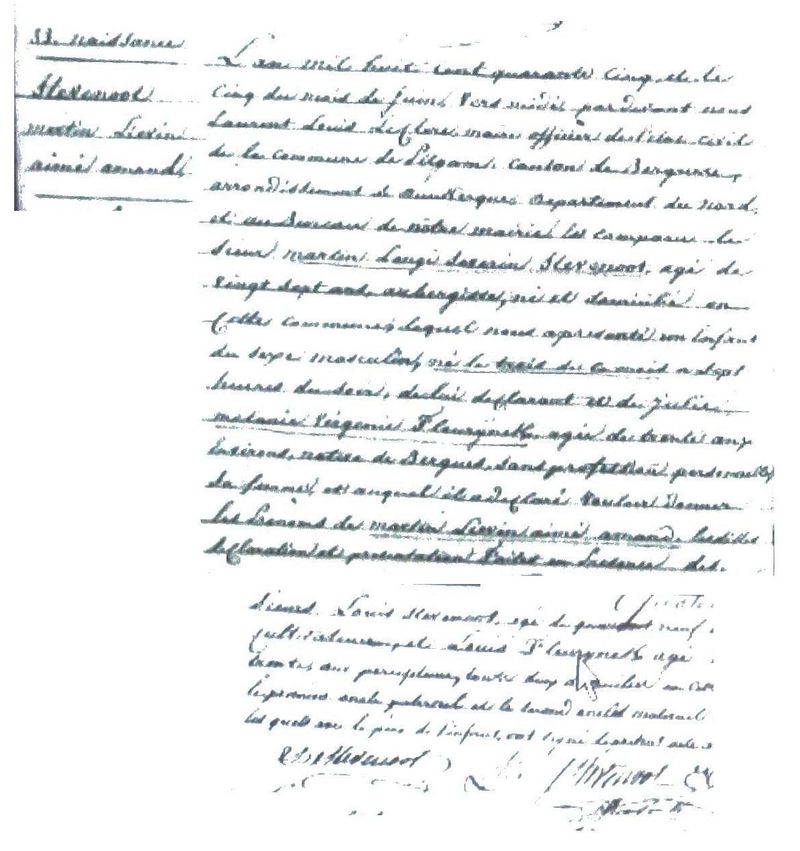 33. naissance
Stevenoot
martin Lievin
aimé amand
L'an mil huit cent quarante cinq et le
cinq du mois de juin, vers midi, pardevant nous
Laurent Louis Leclerc, maire officier de l'état civil
de la commune de Pitgam, canton de Bergues,
arrondissement de Dunkerque, département du nord,
et au Bureau de nôtre mairie est comparu le
sieur martin Severin Stevenoot, agé de
vingt sept ans, aubergiste, né et domicilié en
cette commune, lequel nous a présenté un Enfant
du sexe masculin, né le trois du ce mois a sept
heures du soir, de lui déclarant et de julie
melanie Virgenie Fleurynck, agée de trente ans
Environs, native de Bergues, sans profession personnelle
sa femme, et auquel il a déclaré Vouloir donner
les Prenoms de martin Lievin aimé amand, lesdites
déclaration et présentation Faites en Présence des
sieurs Louis Stevenoot, agé de quarante neuf
cultivateur, et Louis Fleurynck agé
trente ans tous deux domiciliés en
le premier oncle paternel et le second oncle maternel
les quels avec le père de l'enfant, ont signé le présent acte
Stevenoot
Stevenoot